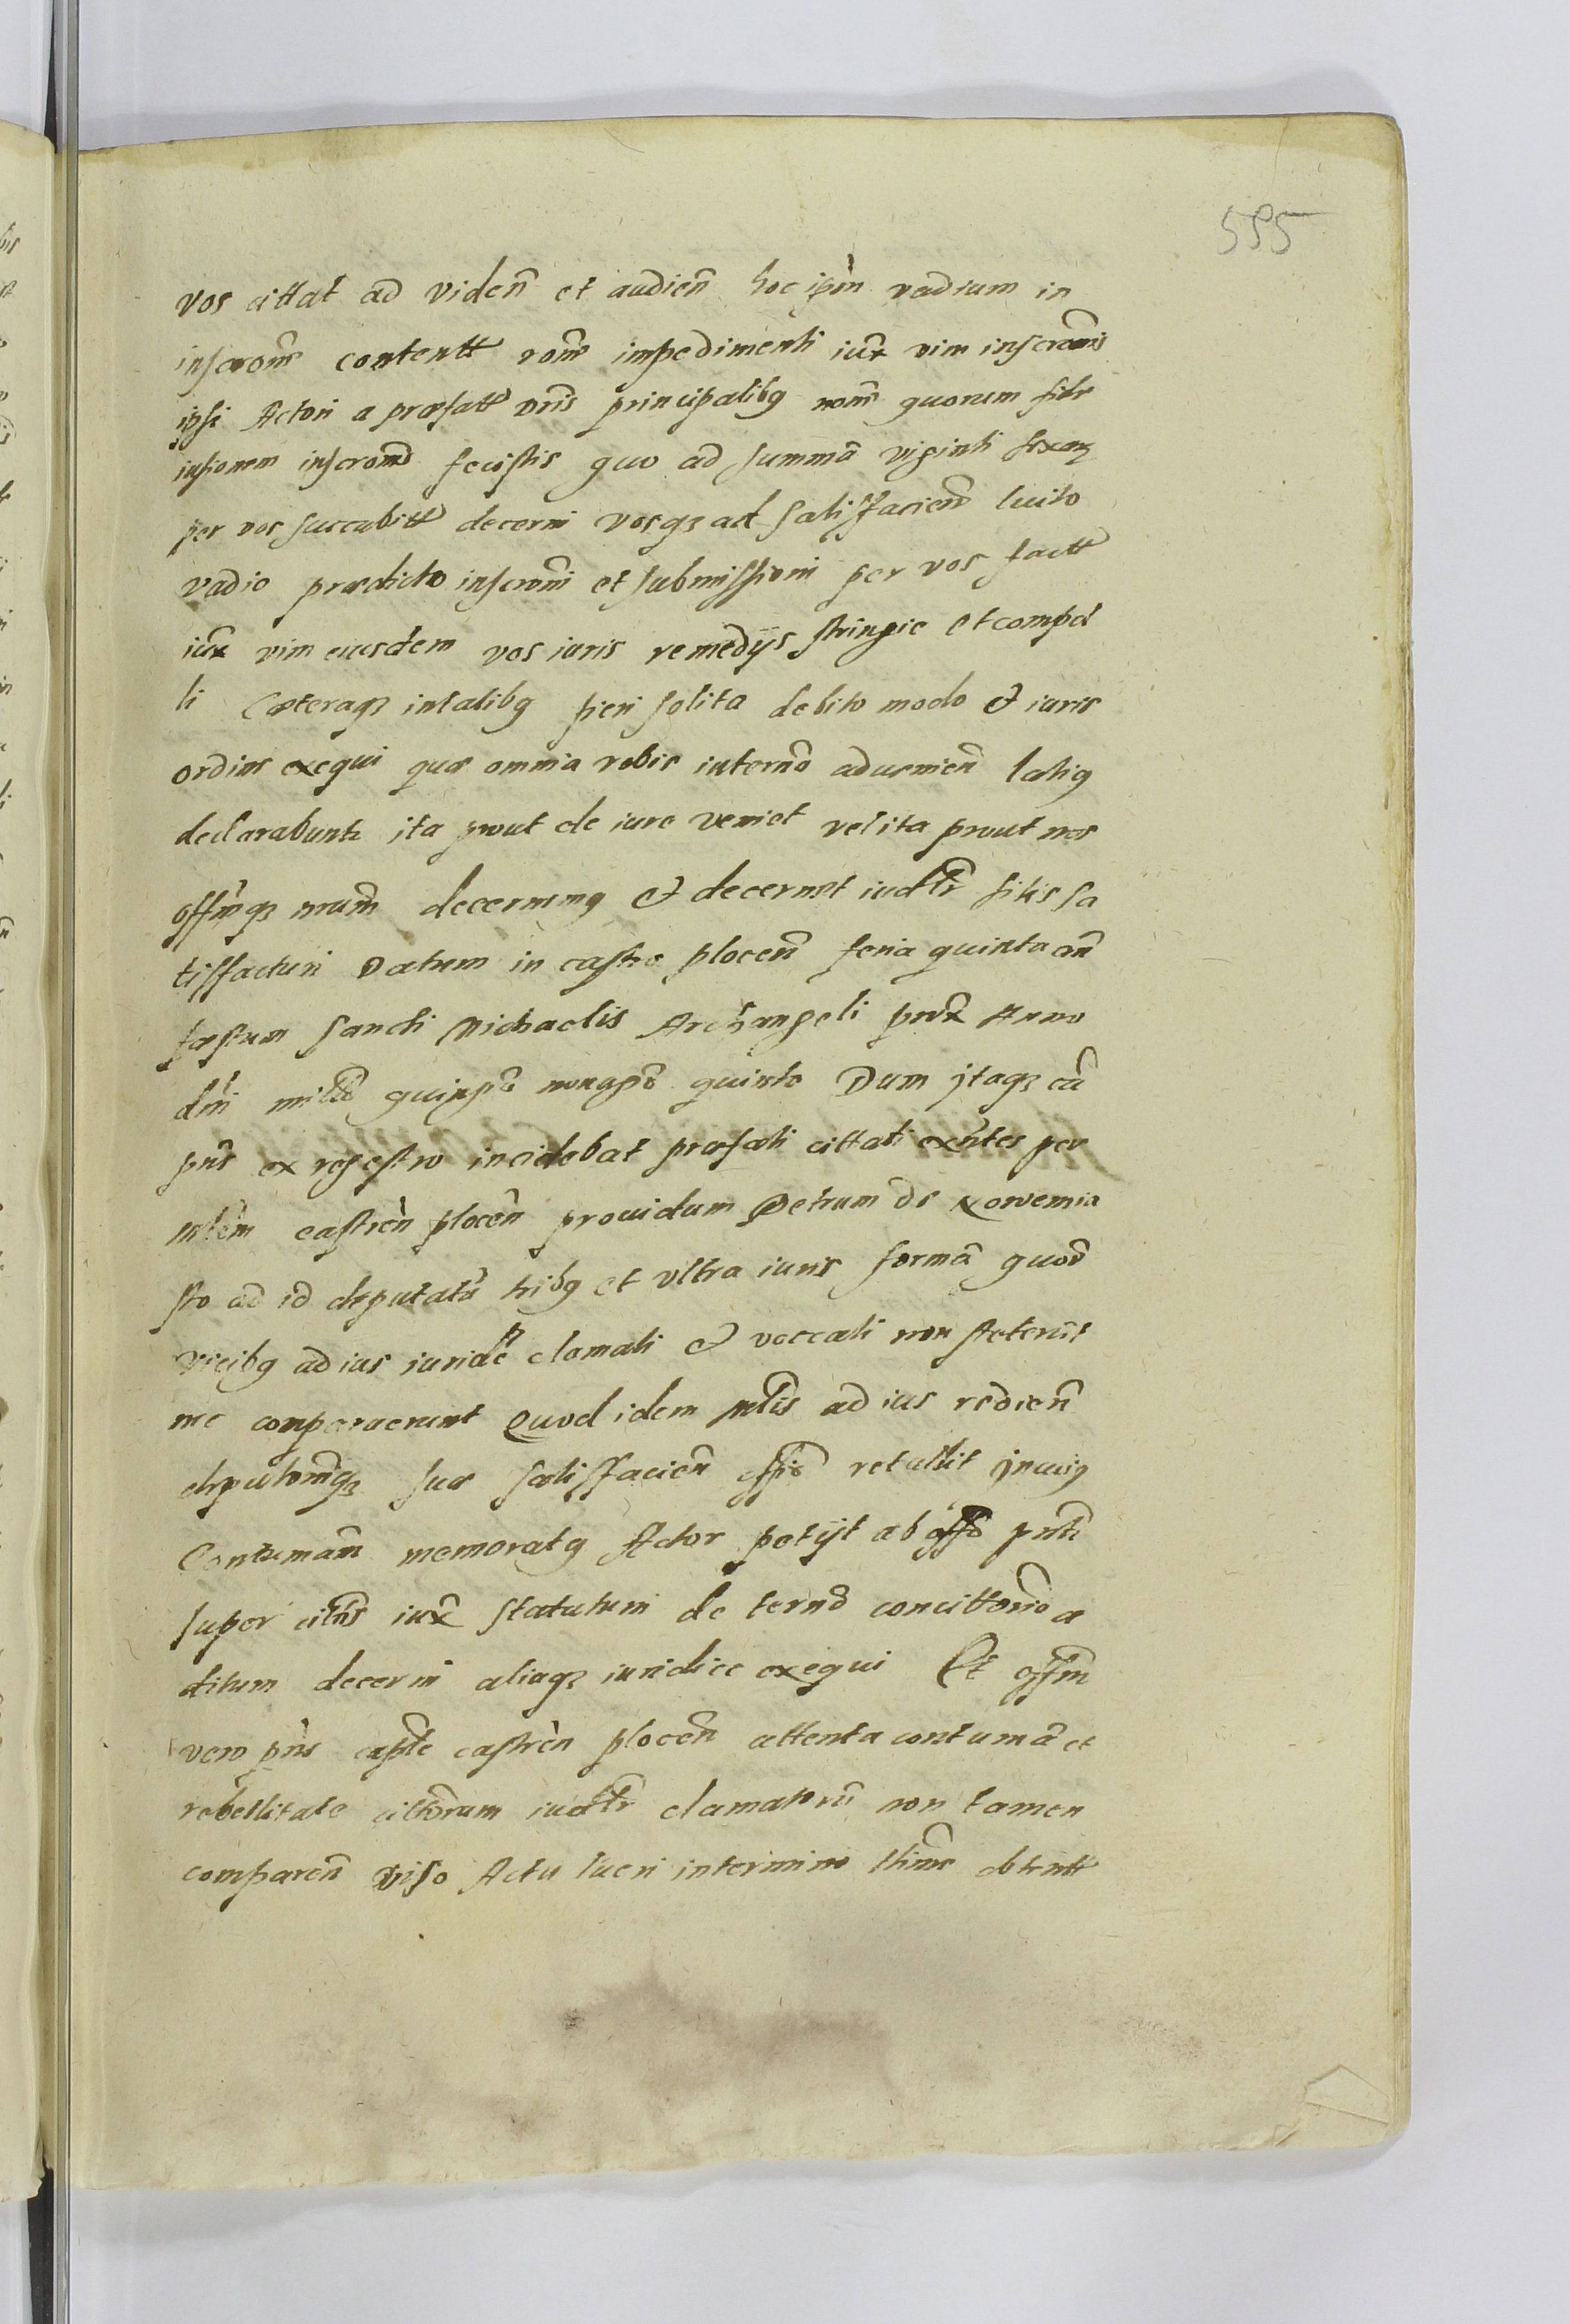 595
vos cittat ad videñ et audieñ hoc ipm̃ vadium in
inscrõne contentt rõne impedimenti iux̃ vim inscrõnis
ipsi Actori a præfatt vr̃is principalibg nõie quorum fide
iussionem inscrõnis fecistis quo ad summã viginti sexag
per vos succubitt decerni vosqz ad satisfacienð luito
vadio prædicto inscrõni et submissioni per vos factt
iux̃ vim eiusdem vos iuris remedijs stringie et compel
li Cæteraqz intalibg fieri solita debito modo et iuris
ordine exequi quæ omnia vobis in termõ adueniẽn latig
declarabuntr ita prout de iure veniet vel ita prout nos
offm̃qz nr̃um decernemg et decernet iudlr̃ sitis sa
tisfacturi Datum in castro ploceñ feria quinta añ
fæstum Sancti Michaelis Archangeli prox̃ Anno
dñi millõ quingmõ nonagmõ quinto Dum itaqz cã
pñs ex regestro incidebat præfati cittati exñtes per
mlem̃ castreñ ploceñ prouidum Petrum de
sto ad id deputatũ tribg et vltra iuris formã quod
vicibg ad ius iuridẽ clamati et voccati non steterũt
nec conperuerunt Quod idem mlis̃ ad ius redieñ
deputõniqz suæ satisfacieñ offiõ retullit Incuig
Contumam̃ memoratg Actor petijt ab offõ pñti
super citt̃is iux̃ statutum de termõ concittõrio a
ditum decerni aliaqz iuridice exequi Et offm̃
vero pñs capl̃e castreñ ploceñ attenta contumã et
rebellitate cittõrum iudlr̃ clamatorũ non tamen
compareñ viso Actu lucri in termino obtentt